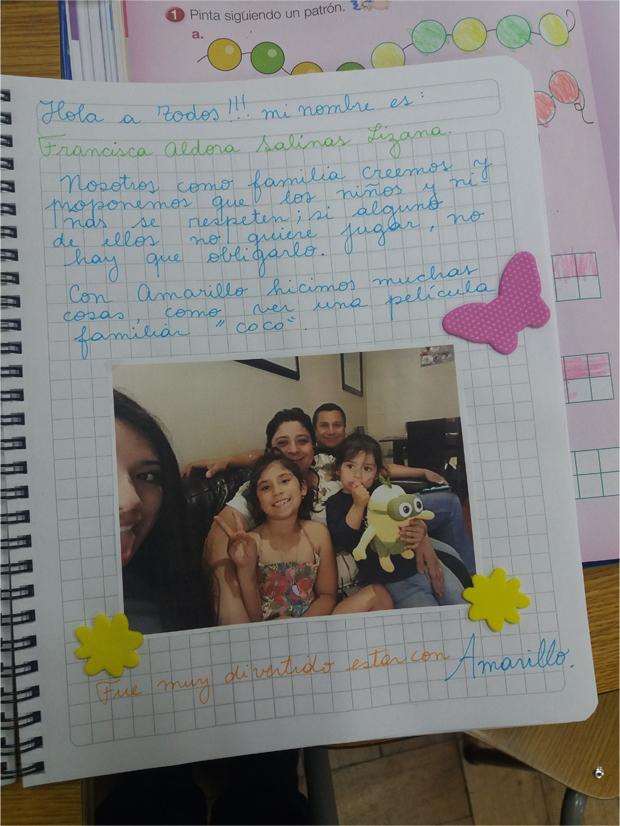 1 Pinta siguiendo un patrón.
a.
Hola a todos!!! mi nombre es:
Francisca Aldora Salinas Lizana.
Nosotros como familia creemos y
proponemos que los niños y ni-
ñas se respeten; si alguno
de ellos no quiere jugar, no
hay que obligarlo.
Con Amarillo hicimos muchas
cosas, como ver una película
familiar "coco".
Fue muy divertido estar con Amarillo.